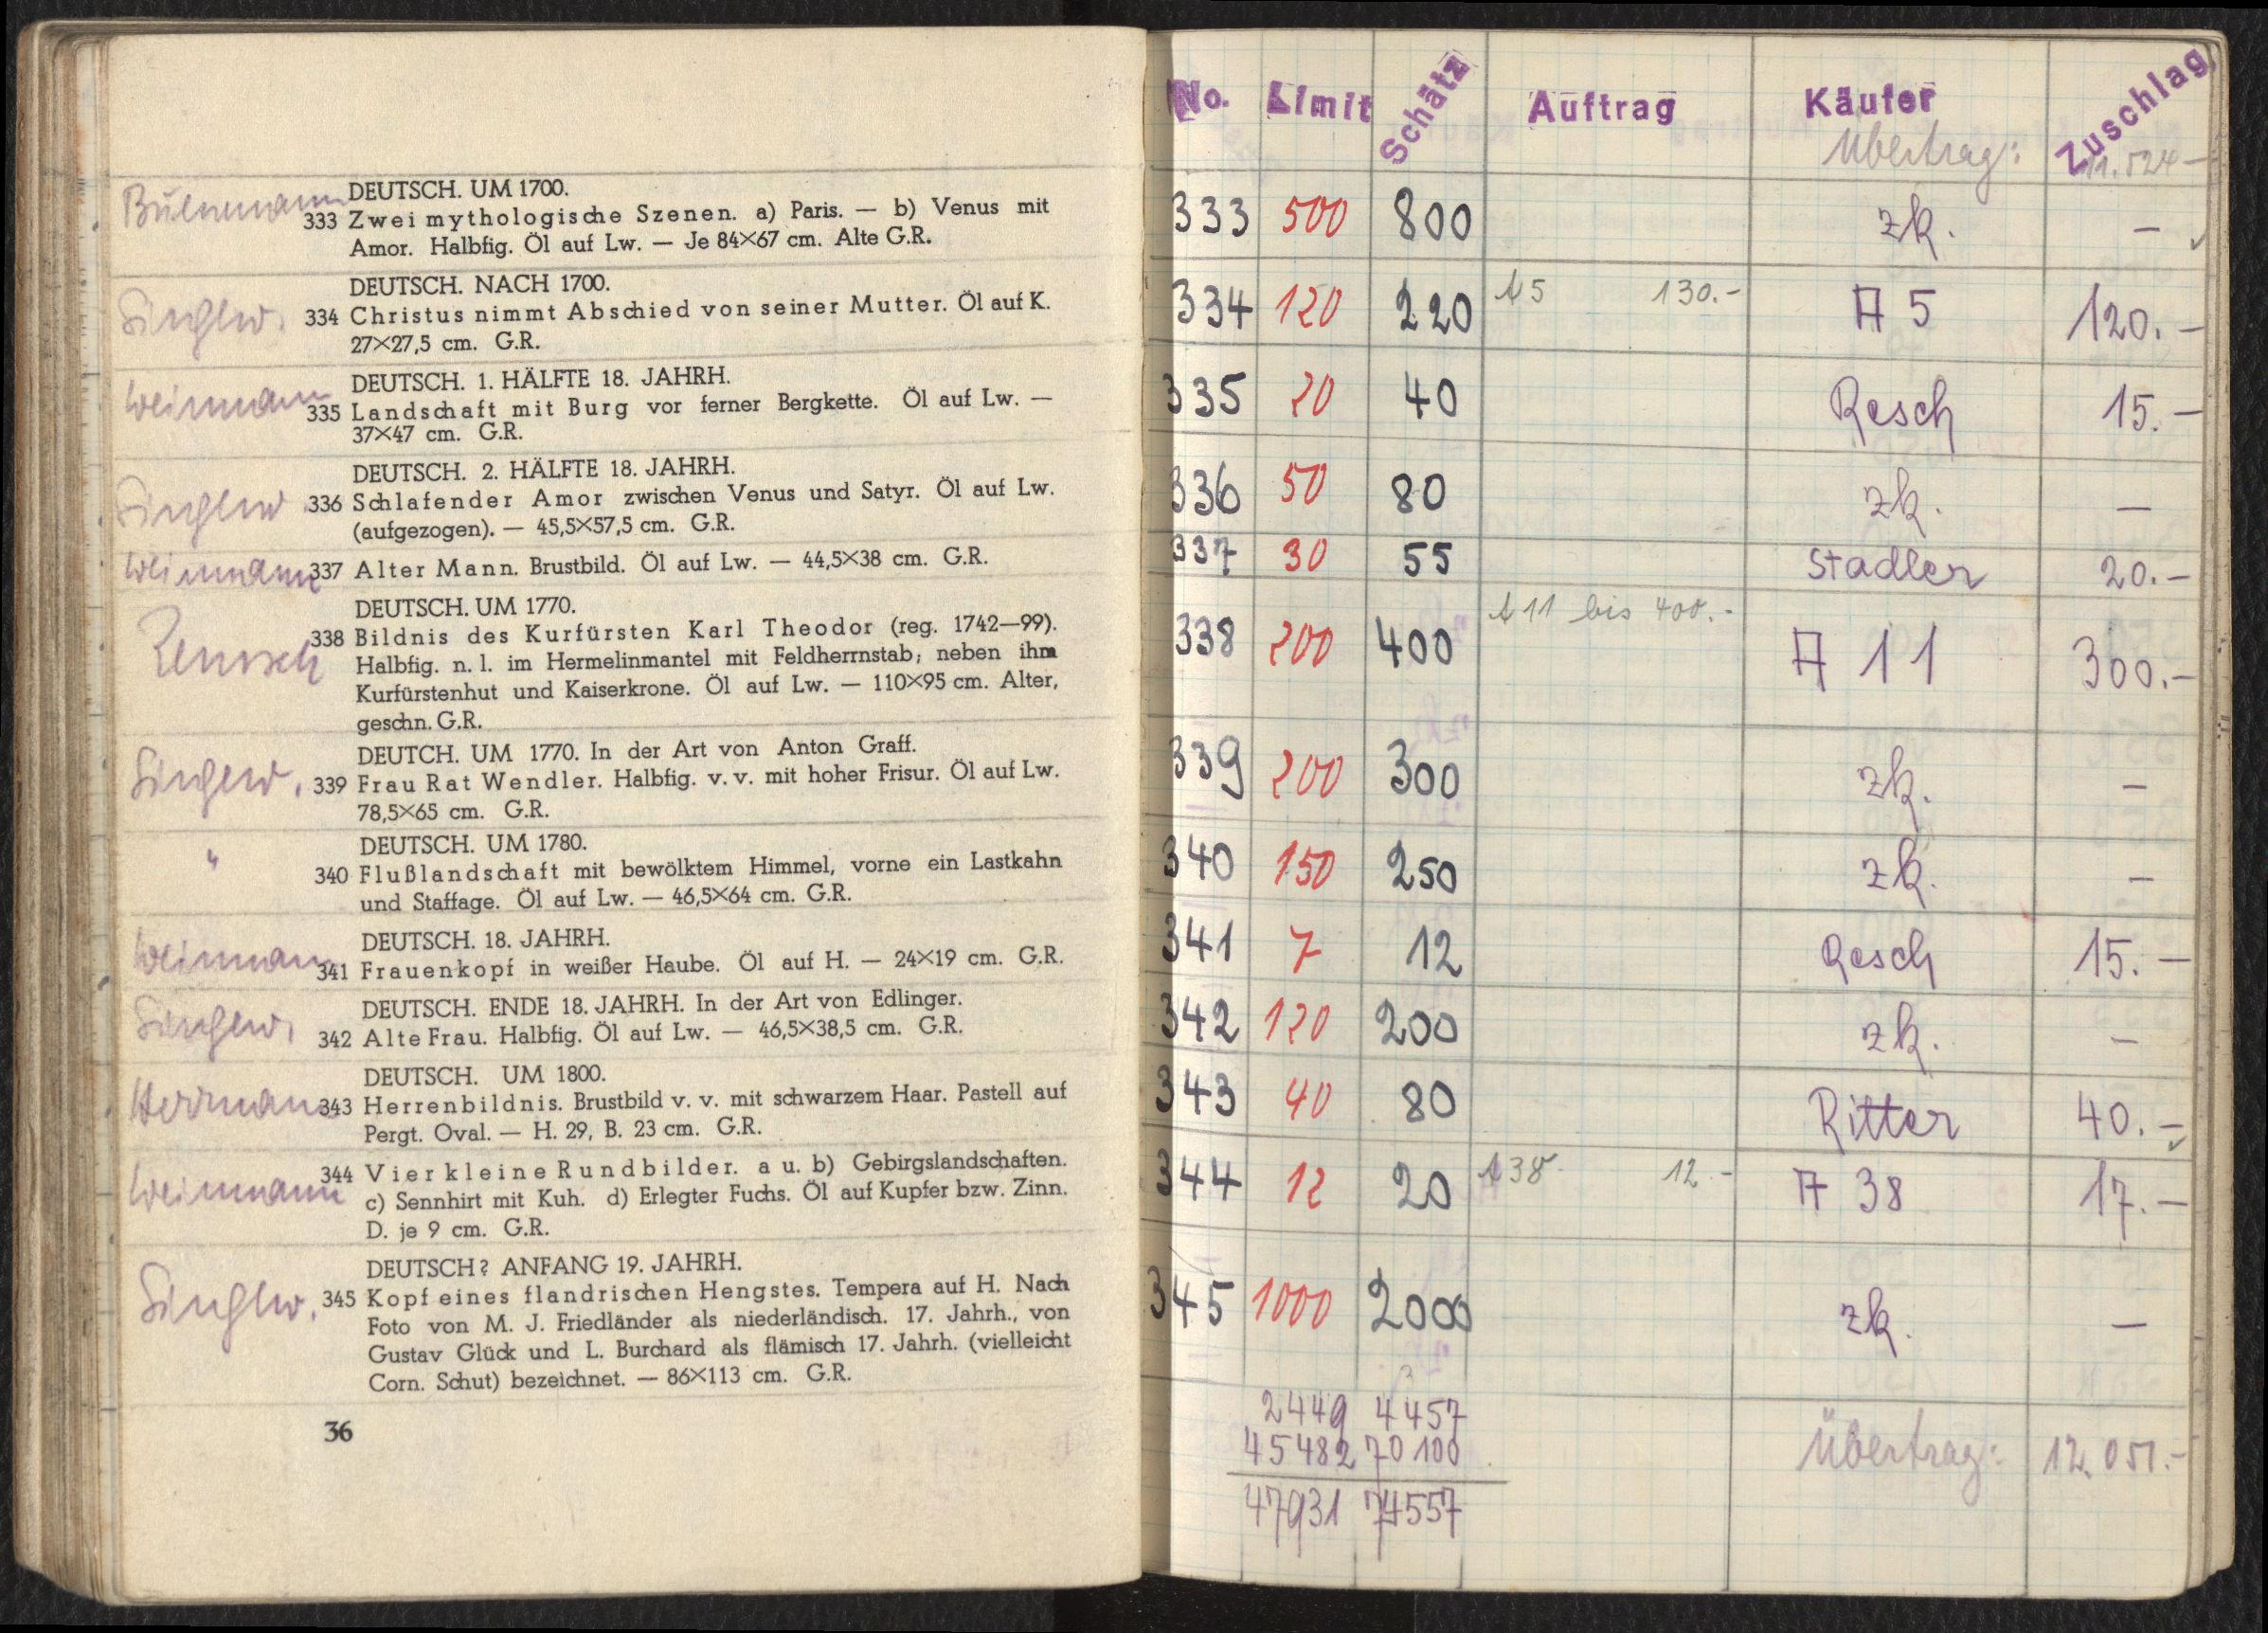 DEUTSCH. UM 1700.
333 Zwei mythologische Szenen. a) Paris. — b) Venus mit
Amor. Halbfig. Öl auf Lw. — Je 84×67 cm. Alte G.R.
DEUTSCH. NACH 1700.
334 Christus nimmt Abschied von seiner Mutter. Öl auf K.
27×27,5 cm. G.R.
Weinmann
DEUTSCH. 1. HÄLFTE 18. JAHRH.
335 Landschaft mit Burg vor ferner Bergkette. Öl auf Lw. —
37×47 cm. G.R.
DEUTSCH. 2. HÄLFTE 18. JAHRH.
336 Schlafender Amor zwischen Venus und Satyr. Öl auf Lw.
(aufgezogen). — 45,5×57,5 cm. G.R.
Weinmann
337 Alter Mann. Brustbild. Öl auf Lw. — 44,5×38 cm. G.R.
DEUTSCH. UM 1770.
338 Bildnis des Kurfürsten Karl Theodor (reg. 1742—99).
Halbfig. n. l. im Hermelinmantel mit Feldherrnstab; neben ihm
Kurfürstenhut und Kaiserkrone. Öl auf Lw. — 110×95 cm. Alter,
geschn. G.R.
DEUTCH. UM 1770. In der Art von Anton Graff.
339 Frau Rat Wendler. Halbfig. v. v. mit hoher Frisur. Öl auf Lw.
78,5×65 cm. G.R.
"
DEUTSCH. UM 1780.
340 Flußlandschaft mit bewölktem Himmel, vorne ein Lastkahn
und Staffage. Öl auf Lw. — 46,5×64 cm. G.R.
Weinmann
DEUTSCH. 18. JAHRH.
341 Frauenkopf in weißer Haube. Öl auf H. — 24×19 cm. G.R.
DEUTSCH. ENDE 18. JAHRH. In der Art von Edlinger.
342 Alte Frau. Halbfig. Öl auf Lw. — 46,5×38,5 cm. G.R.
Herrmann
DEUTSCH. UM 1800.
343 Herrenbildnis. Brustbild v. v. mit schwarzem Haar. Pastell auf
Pergt. Oval. — H. 29, B. 23 cm. G.R.
Weinmann
344 Vier kleine Rundbilder. a u. b) Gebirgslandschaften.
c) Sennhirt mit Kuh. d) Erlegter Fuchs. Öl auf Kupfer bzw. Zinn.
D. je 9 cm. G.R.
DEUTSCH? ANFANG 19. JAHRH.
345 Kopf eines flandrischen Hengstes. Tempera auf H. Nach
Foto von M. J. Friedländer als niederländisch. 17. Jahrh., von
Gustav Glück und L. Burchard als flämisch 17. Jahrh. (vielleicht
Corn. Schut) bezeichnet. — 86×113 cm. G.R.
36
No. Limit Schätz Auftrag Käufer Zuschlag
Übertrag: 11.524—
333 500 800 zk. —
334 120 220 A 5 130.- A 5 120.—
335 20 40 Resch 15.—
336 50 80 zk. —
337 30 55 Stadler 20.—
338 200 400 A 11 bis 400.- A 11 300.—
339 200 300 zk. —
340 150 250 zk. —
341 7 12 Resch 15.—
342 120 200 zk. —
343 40 80 Ritter 40.—
344 12 20 A 38 12.- A 38 17.—
345 1000 2000 zk. —
2449 4457
45482 70100
Übertrag: 12.051.-
47931 74557